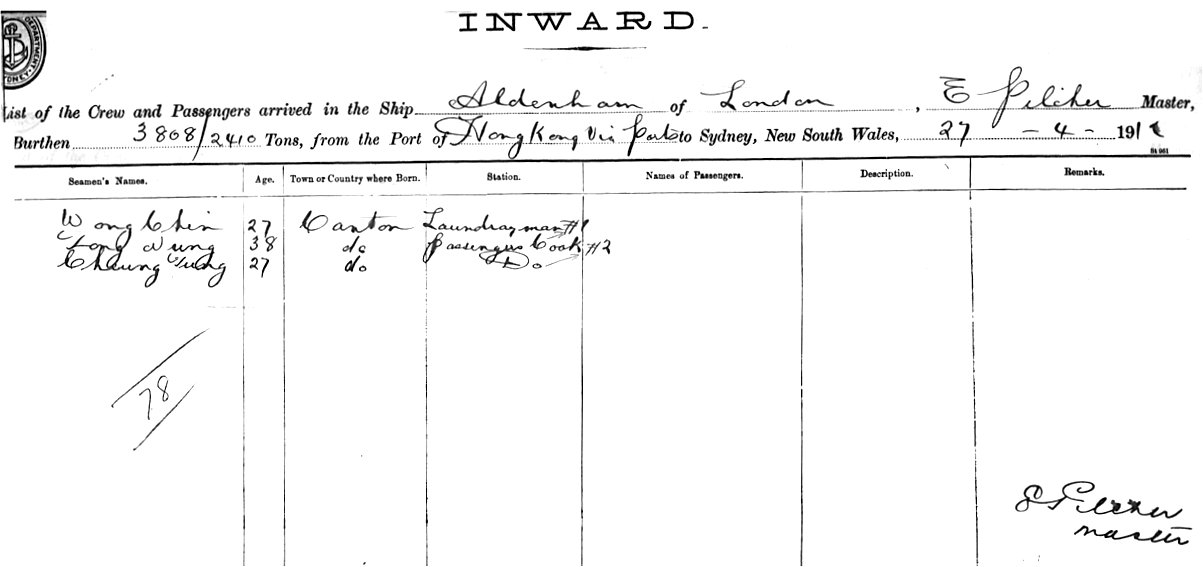 INWARD.
DEPARTMENT
SYDNEY
List of the Crew and Passengers arrived in the Ship Aldenham of London, E Pilcher Master,
Burthen 3808/2410 Tons, from the Port of Hong Kong Via Ports to Sydney, New South Wales, 27 - 4 - 191
Seamen's Names. Age. Town or Country where Born. Station. Names of Passengers. Description. Remarks.
Wong Chin 27 Canton Laundrayman #1
Fong Nung 38 do passengers Cook #2
Cheung Tung 27 do Do
78
E Pilcher
master